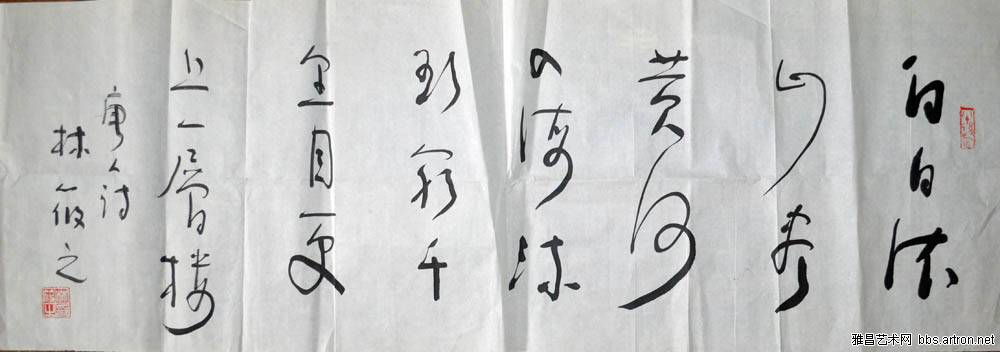 白日依
山盡
黄河
入海流
欲窮千
里目更
上一層樓
唐人詩
林筱之
雅昌艺术网 bbs.artron.net